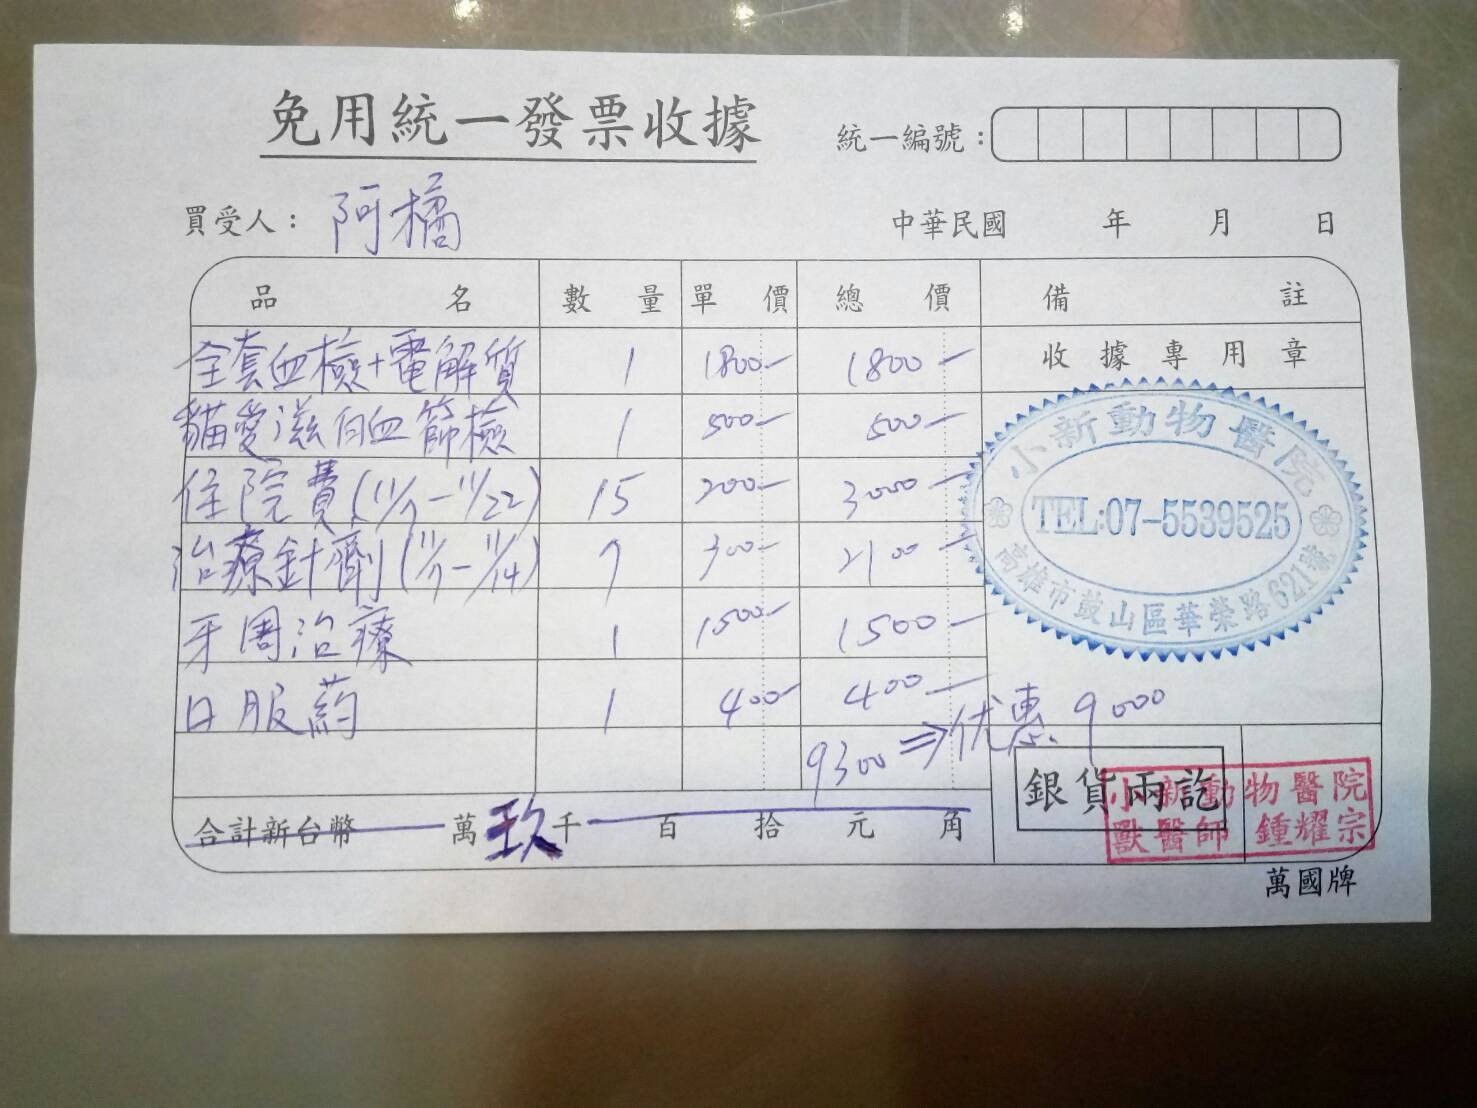 免用統一發票收據
統一編號：
買受人： 阿橘
中華民國 年 月 日
品名 數量 單價 總價 備註
全套血檢+電解質 1 1800- 1800-
收據專用章
貓愛滋白血篩檢 1 500- 500-
住院費(11/7-11/22) 15 200- 3000-
治療針劑(11/7-11/14) 7 300- 2100-
牙周治療 1 1500- 1500-
口服葯 1 400- 400-
9300⇒优惠 9000
合計新台幣 萬 玖 千 百 拾 元 角
小新動物醫院
TEL:07-5539525
高雄市鼓山區華榮路621號
銀貨兩訖
小新動物醫院
獸醫師 鍾耀宗
萬國牌